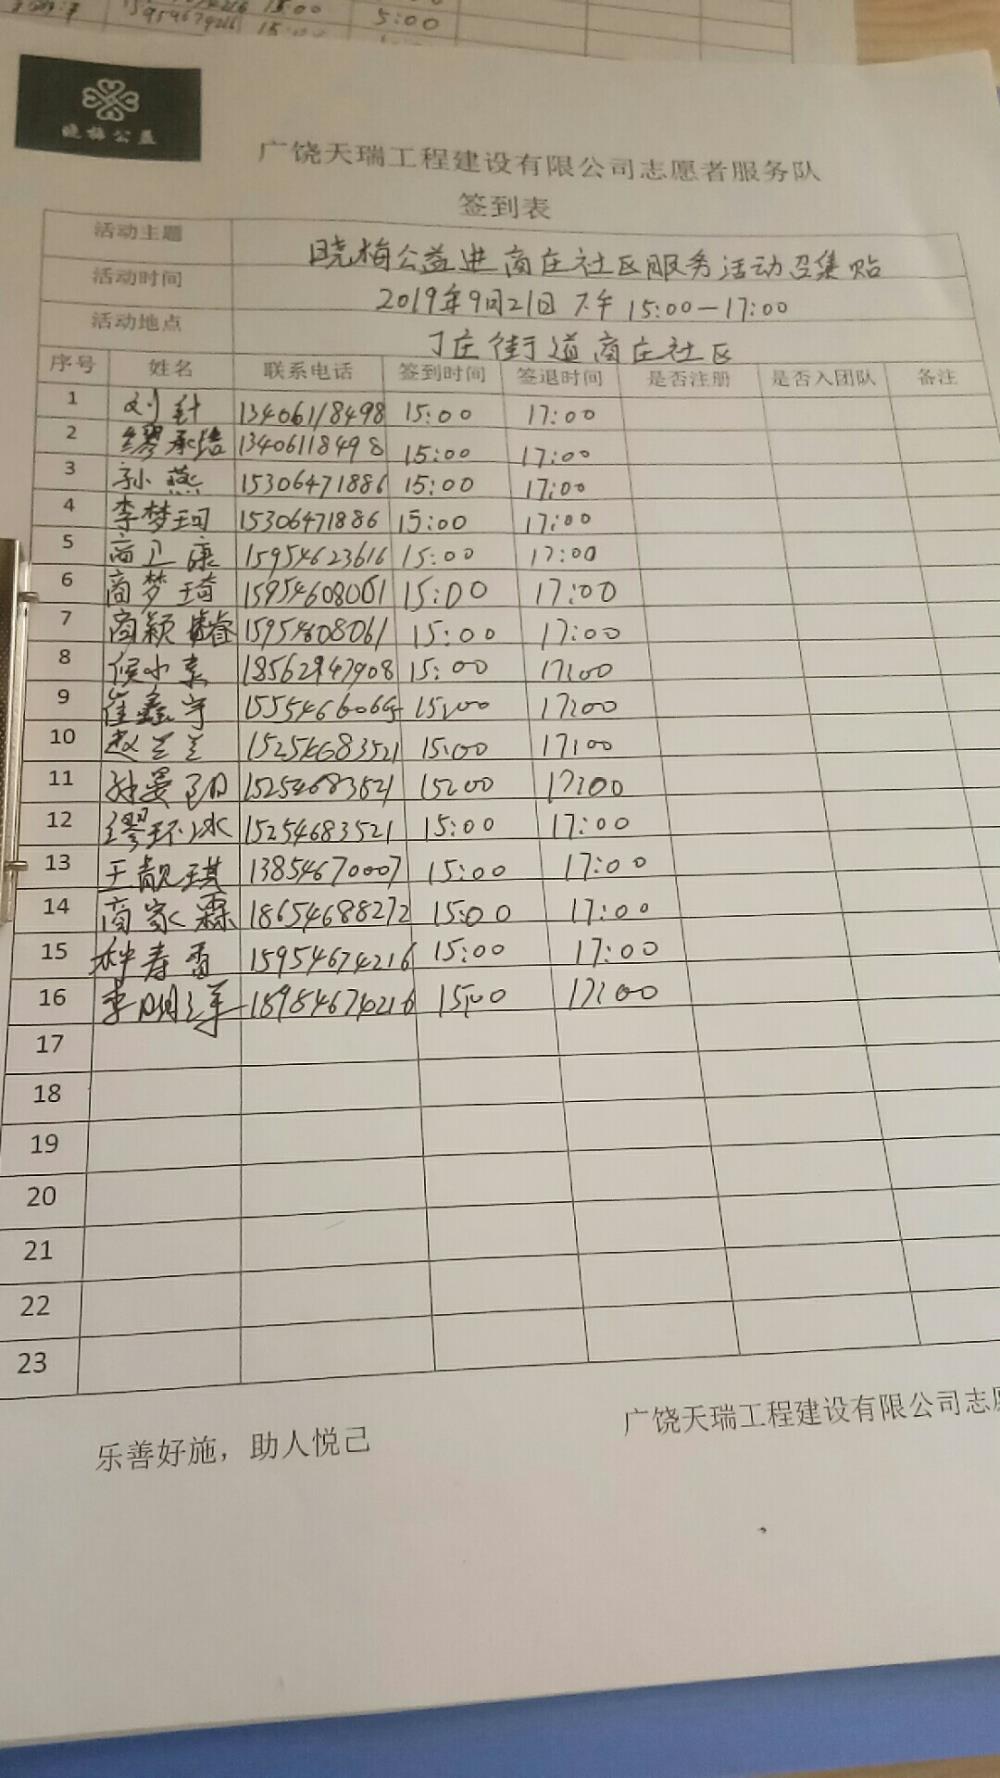 15954674216 15:00 5:00
晓梅公益
广饶天瑞工程建设有限公司志愿者服务队
签到表
活动主题 晓梅公益进商庄社区服务活动召集贴
活动时间 2019年9月21日 下午 15:00—17:00
活动地点 丁庄街道商庄社区
序号 姓名 联系电话 签到时间 签退时间 是否注册 是否入团队 备注
1 刘 13406118498 15:00 17:00
2 缪承培 13406118498 15:00 17:00
3 孙燕 15306471886 15:00 17:00
4 李梦珂 15306471886 15:00 17:00
5 商卫康 15954623616 15:00 17:00
6 商梦琦 15954608061 15:00 17:00
7 商颖睿 15954608061 15:00 17:00
8 侯小素 18562947908 15:00 17:00
9 崔鑫宇 15:00 17:00
10 赵兰兰 15254683521 15:00 17:00
11 15254683521 15:00 17:00
12 缪环冰 15254683521 15:00 17:00
13 王靓琪 13854670007 15:00 17:00
14 商家霖 18654688272 15:00 17:00
15 种春香 15954674216 15:00 17:00
16 李明军 15954674216 15:00 17:00
17
18
19
20
21
22
23
乐善好施，助人悦己
广饶天瑞工程建设有限公司志愿